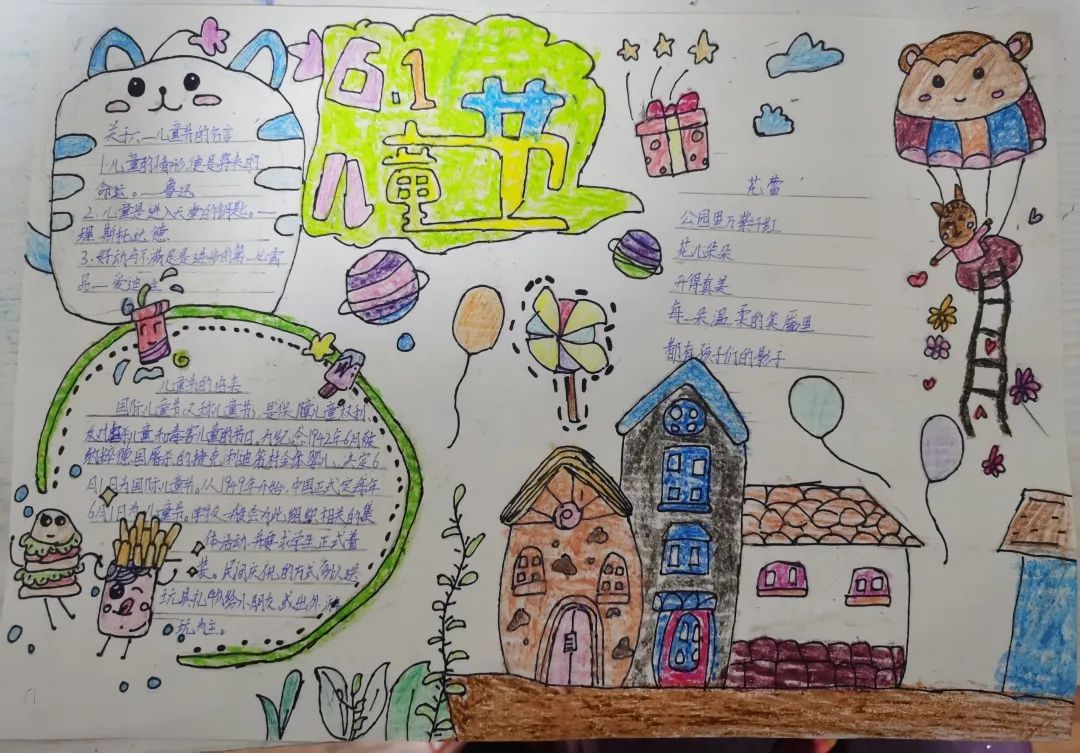 6.1
儿童节
关于六一儿童节的名言
1.儿童的情形,便是将来的
命运。——鲁迅
2.儿童是进入天堂的钥匙。——
理.斯托达德
3.好动与不满足是进步的第一必需
品——爱迪生
儿童节的由来
国际儿童节(又称儿童节),是保障儿童权利
反对虐杀儿童和毒害儿童的节日。为纪念1942年6月被
纳粹德国屠杀的捷克利迪策村全体婴儿、决定6
月1日为国际儿童节。从1949年开始,中国正式定每年
6月1日为儿童节。学校一般会为此组织相关的集
体活动,并要求学生正式着
装。民间庆祝的方式多以送
玩具礼物给小朋友或出外游
玩为主。
花蕾
公园里万紫千红
花儿朵朵
开得真美
每一朵温柔的笑靥里
都有孩子们的影子